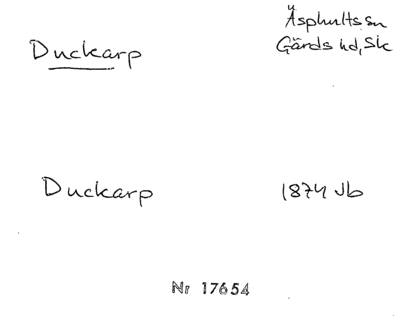 Duckarp
Äsphults sn
Gärds hd, Sk
Duckarp
1874 Jb
Nr 17654